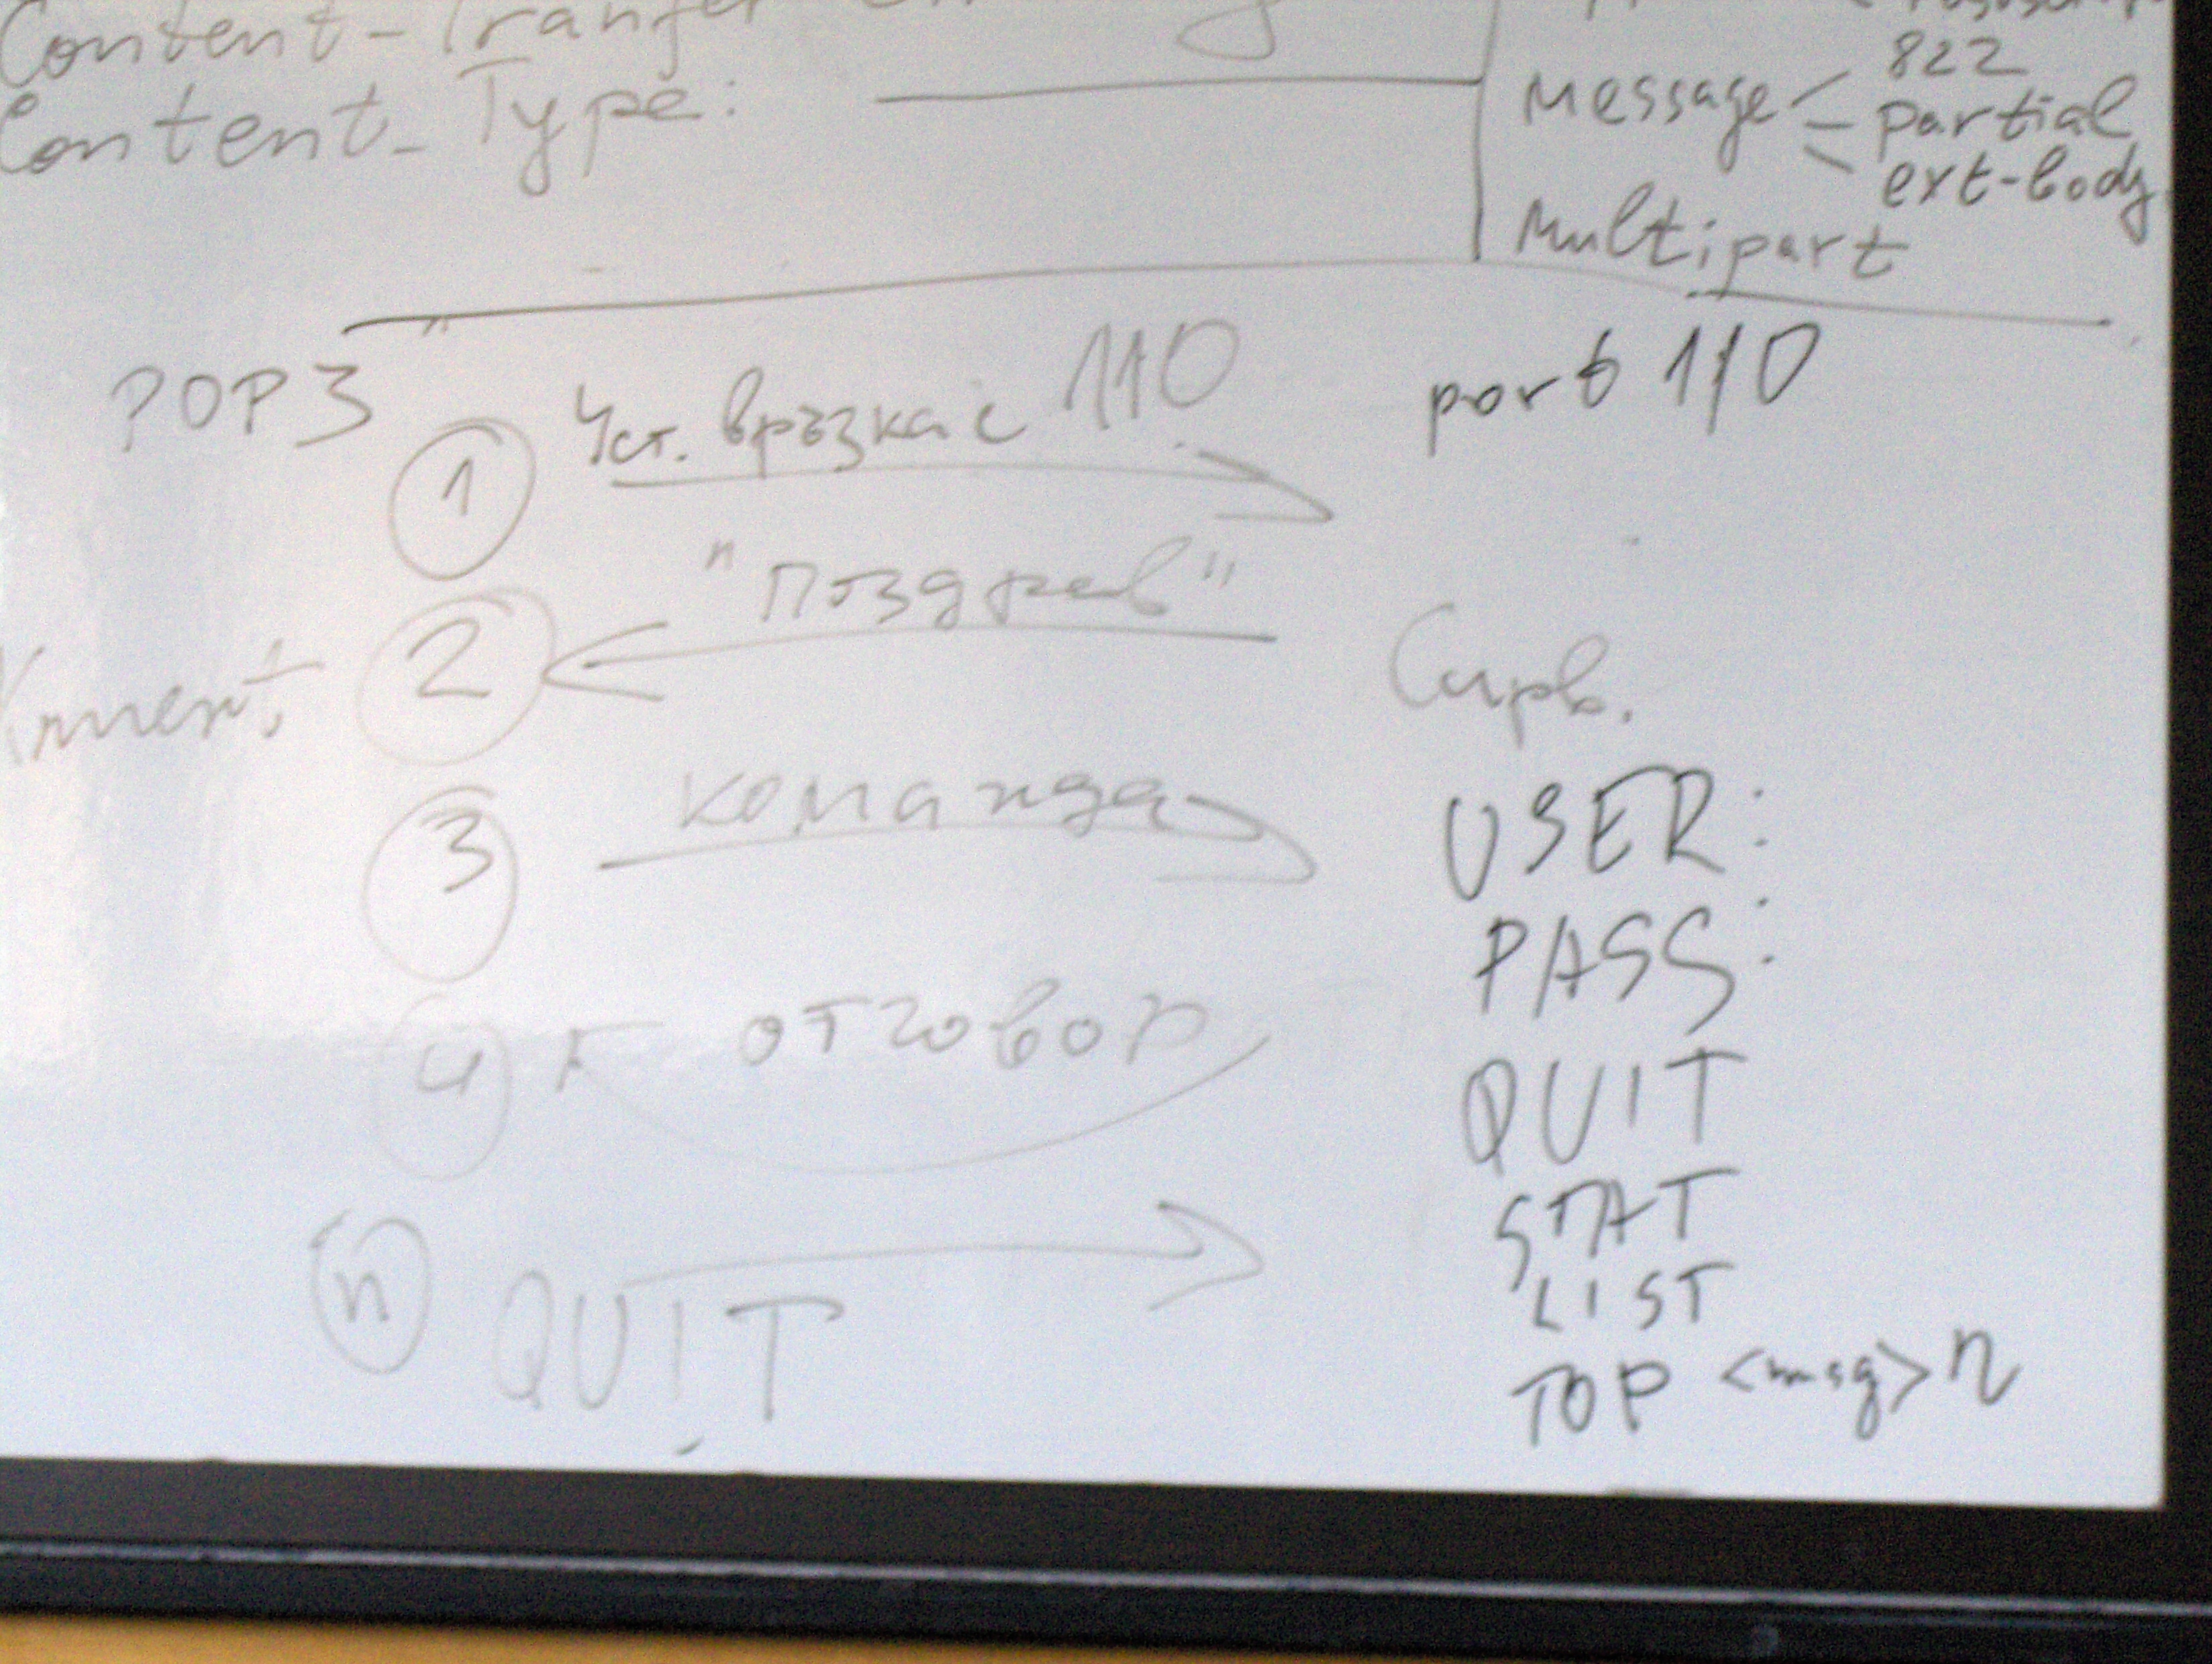 Content-Tranfer
Content-Type:
822
Message
partial
ext-body
Multipart
POP3
1 Уст. връзка с 110
port 110
"Поздрав"
2
Клиент
Сърв.
3 команда
USER:
PASS:
4 отговор
QUIT
STAT
n QUIT
LIST
TOP <msg> n